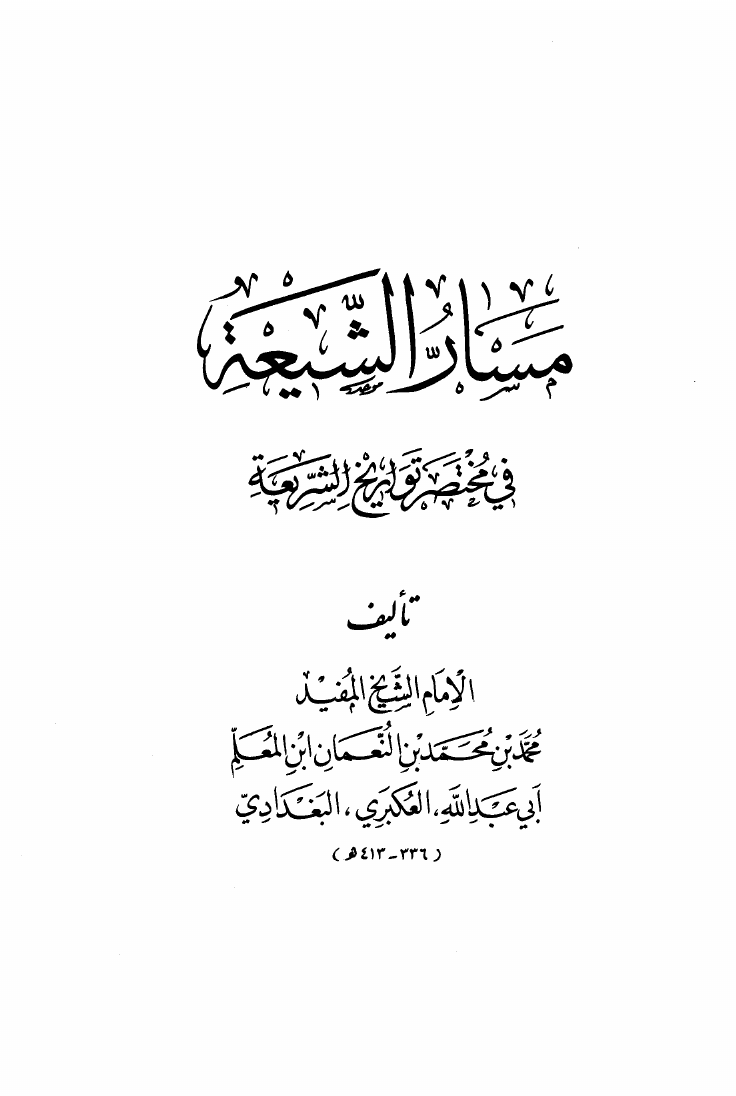 مَسَارُّ الشِّيعَةِ
فِي مُخْتَصَرِ تَوَارِيخِ الشَّرِيعَةِ
تأليف
الإِمَامِ الشَّيْخِ المُفِيْد
مُحَمَّدِ بْنِ مُحَمَّدِ بْنِ النُّعْمَانِ ابْنِ المُعَلِّمِ
أَبِي عَبْدِ اللَّهِ، العُكْبَرِي، البَغْدَادِيّ
(٣٣٦-٤١٣هـ)